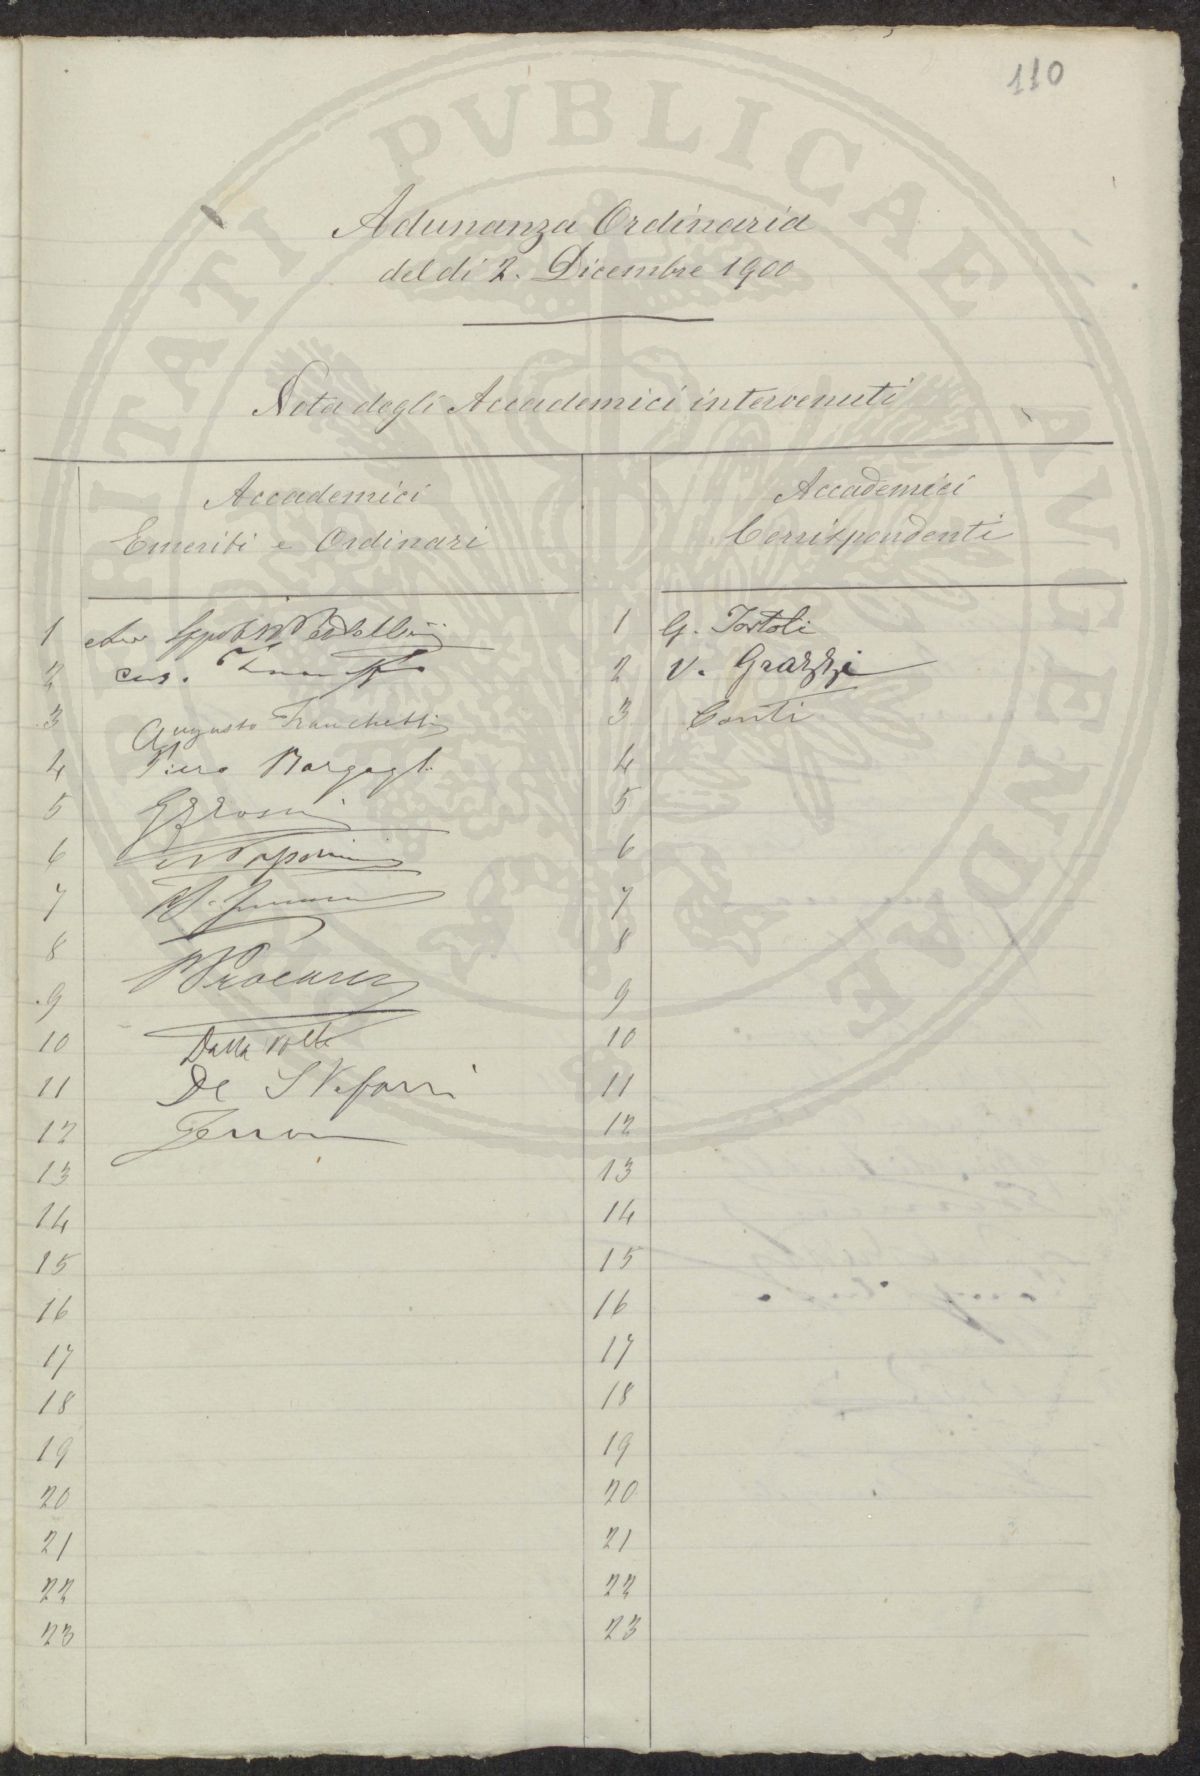 110
PVBLICAE
Adunanza Ordinaria
del dì 2. Dicembre 1900
Nota degli Accademici intervenuti
Accademici
Emeriti e Ordinari
Accademici
Corrispondenti
1
2
3 Augusto Franchetti
4 Piero Bargagli
5
6
7
8
9
10 Dalla Volta
11 De Stefani
12
13
14
15
16
17
18
19
20
21
22
23
1 G. Tortoli
2 V. Grazzi
3 Conti
4
5
6
7
8
9
10
11
12
13
14
15
16
17
18
19
20
21
22
23